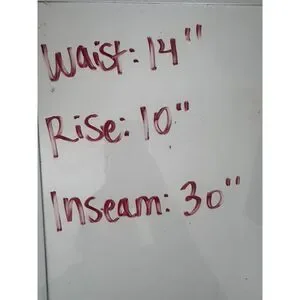 Waist: 14"
Rise: 10"
Inseam: 30"